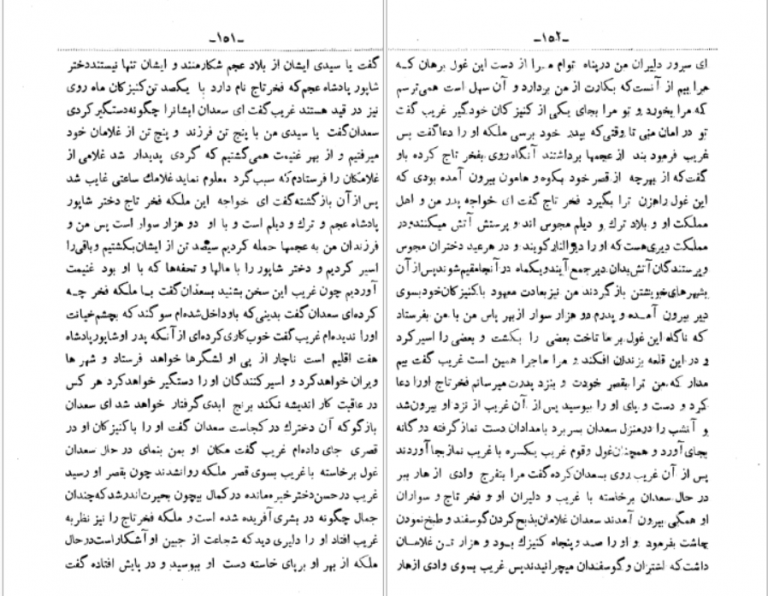 -۱۵۱-
گفت یا سیدی ایشان از بلاد عجم شکارمنند و ایشان تنها نیستنددختر
شاپور پادشاه عجم‌که فخرتاج نام دارد با یکصد تن‌کنیزکان ماه روی
نیز در قید هستند غریب‌گفت ای سعدان ایشانرا چگونه‌دستگیر کردی
سعدان‌گفت یا سیدی من با پنج تن فرزند و پنج تن از غلامان خود
میرفتیم و از بهر غنیمت همی‌گشتیم که گردی پدیدار شد غلامی از
غلامکان را فرستادم‌که سبب‌گرد معلوم نماید غلامك ساعتی غایب شد
پس از آن بازگشته‌گفت ای خواجه این ملکه فخر تاج دختر شاپور
پادشاه عجم و ترك و دیلم است و با او دو هزار سوار است پس من و
فرزندان من به عجمها حمله کردیم سیصد تن از ایشان بکشتیم و باقی‌را
اسیر کردیم و دختر شاپور را با مالها و تحفه‌ها که با او بود غنیمت
آوردیم چون غریب این سخن بشنید بسعدان گفت بـا ملکه فخر چـه
کرده‌ای سعدان گفت بدینی‌که باو داخل شده‌ام سوگند که بچشم خیانت
اورا ندیده‌ام غریب گفت خوب‌کاری کرده‌ای از آنکه پدر اوشاپورپادشاه
هفت اقلیم است ناچار از پی او لشگرها خواهد فرستاد و شهر ها
ویران خواهدکرد و اسیرکنندگان او را دستگیر خواهدکرد هر کس
در عاقبت کار اندیشه نکند برنج ابدی‌گرفتار خواهد شد ای سعدان
بازگوکه آن دخترك در کجاست سعدان گفت او را باکنیزکان او در
قصری جای داده‌ام غریب گفت مکان او بمن بنمای در حال سعدان
غول برخاسته با غریب بسوی قصر ملکه روانشدند چون بقصر او رسید
غریب درحسن دخترخیره‌مانده در کمال بیچون بحیرت‌اندرشدکه‌چندان
جمال چگونه در بشری آفریده شده است و ملکه فخرتاج را نیز نظر به
غریب افتاد او را دلیری دیدکه شجاعت از جبین او آشکاراست‌درحال
ملکه از بهر او برپای خاسته دست او ببوسید و در پایش افتاده گفت
-۱۵۲-
ای سرور دلیران من درپناه توام مـرا از دست این غول برهان کـه
هرا بیم از آنست‌که بکارت از من بردارد و آن سهل است همی‌ترسم
که مرا بخورد و تو مرا بجای یکی از کنیز کان خودگیر غریب گفت
تو در امان منی تا وقتی‌که بپدر خود برسی ملکه او را دعاگفت پس
غریب فرمود بند از عجمها برداشتند آنگاه‌روی بفخر تاج کرده باو
گفت‌که از بهرچه از قصر خود بکوه و هامون بیرون آمده بودی که
این غول راهزن ترا بگیرد فخر تاج گفت ای خواجه پدر من و اهل
مملکت او و بلاد ترك و دیلم مجوس اند و پرستش آتش میکنندو در
مملکت دیری‌هست‌که او را دیرالنارگویند و در هرعید دختران مجوس
وپرستندگان آتش‌بدان دیر جمع آیند و یکماه در آنجامقیم‌شوندپس از آن
بشهرهای‌خویشتن بازگردند من نیزبعادت معهود باکنیزکان‌خودبسوی
دیر بیرون آمـده و پدرم دو هزار سوار ازبهر پاس من با من بفرستاد
که ناگاه این غول بر ما تاخت بعضی را بکشت و بعضی را اسیر کرد
و در این قلعه بزندان افکند و مرا ماجرا همین است غریب گفت بیم
مدار که من ترا بقصر خودت و بنزد پدرت میرسانم فخرتاج اورا دعا
کرد و دست و پای او را ببوسید پس از آن غریب از نزد او بیرون‌شد
و آنشب را درمنزل سعدان بسربرد بامدادان دست نمازگرفته دوگانه
بجای‌آورد و همچنان‌غول وقوم غریب یکسره با غریب نمازبجا آوردند
پس از آن غریب روی بسعدان‌کرده‌گفت مرا بتفرج وادی ازهار ببر
در حال سعدان برخاسته با غریب و دلیران او و فخر تاج و سواران
او همگی بیرون آمدند سعدان غلامان‌بذبح‌کردن‌گوسفند و طبخ‌نمودن
چاشت بفرمود و او را صد و پنجاه کنیزك بـود و هزار تـن غلامـان
داشت‌که اشتران و گوسفندان میچرانیدندپس غریب بسوی وادی ازهار